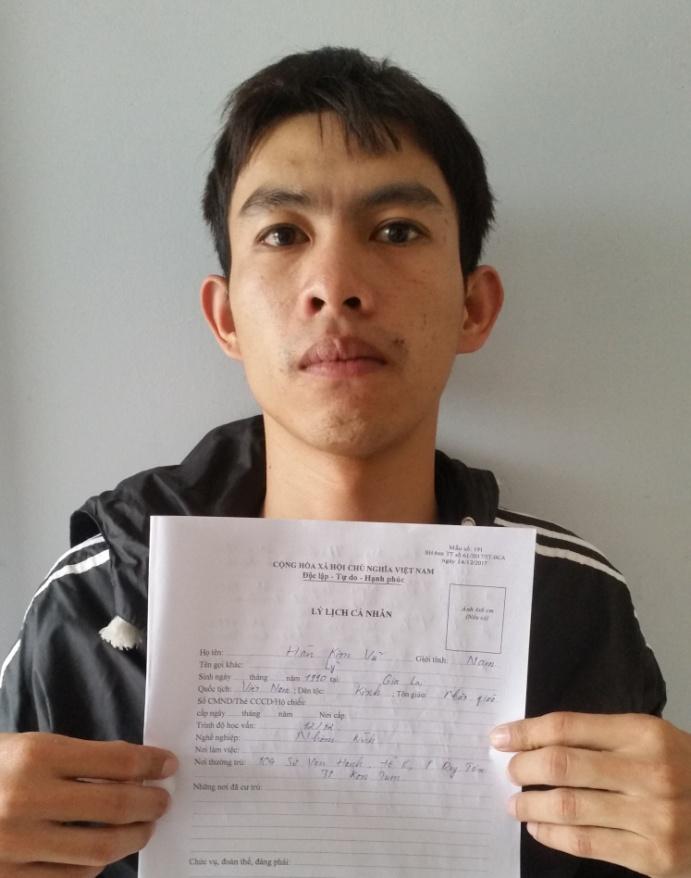 Mẫu số: 191
BH theo TT số 61/2017/TT-BCA
ngày 14/12/2017
CỘNG HÒA XÃ HỘI CHỦ NGHĨA VIỆT NAM
Độc lập - Tự do - Hạnh phúc
LÝ LỊCH CÁ NHÂN
Ảnh 4x6 cm
(Nếu có)
Họ tên: Hàn Kim Vũ Giới tính: Nam
Tên gọi khác: Lỳ
Sinh ngày tháng năm 1990 tại Gia La
Quốc tịch: Việt Nam ; Dân tộc: Kinh ; Tôn giáo: Phật giáo
Số CMND/Thẻ CCCD/Hộ chiếu:
cấp ngày tháng năm Nơi cấp
Trình độ học vấn: 12/12
Nghề nghiệp:
Nơi làm việc:
Nơi thường trú: Sư Vạn Hạnh, P Duy Tân
TP Kon Tum
Những nơi đã cư trú:
Chức vụ, đoàn thể, đảng phái: